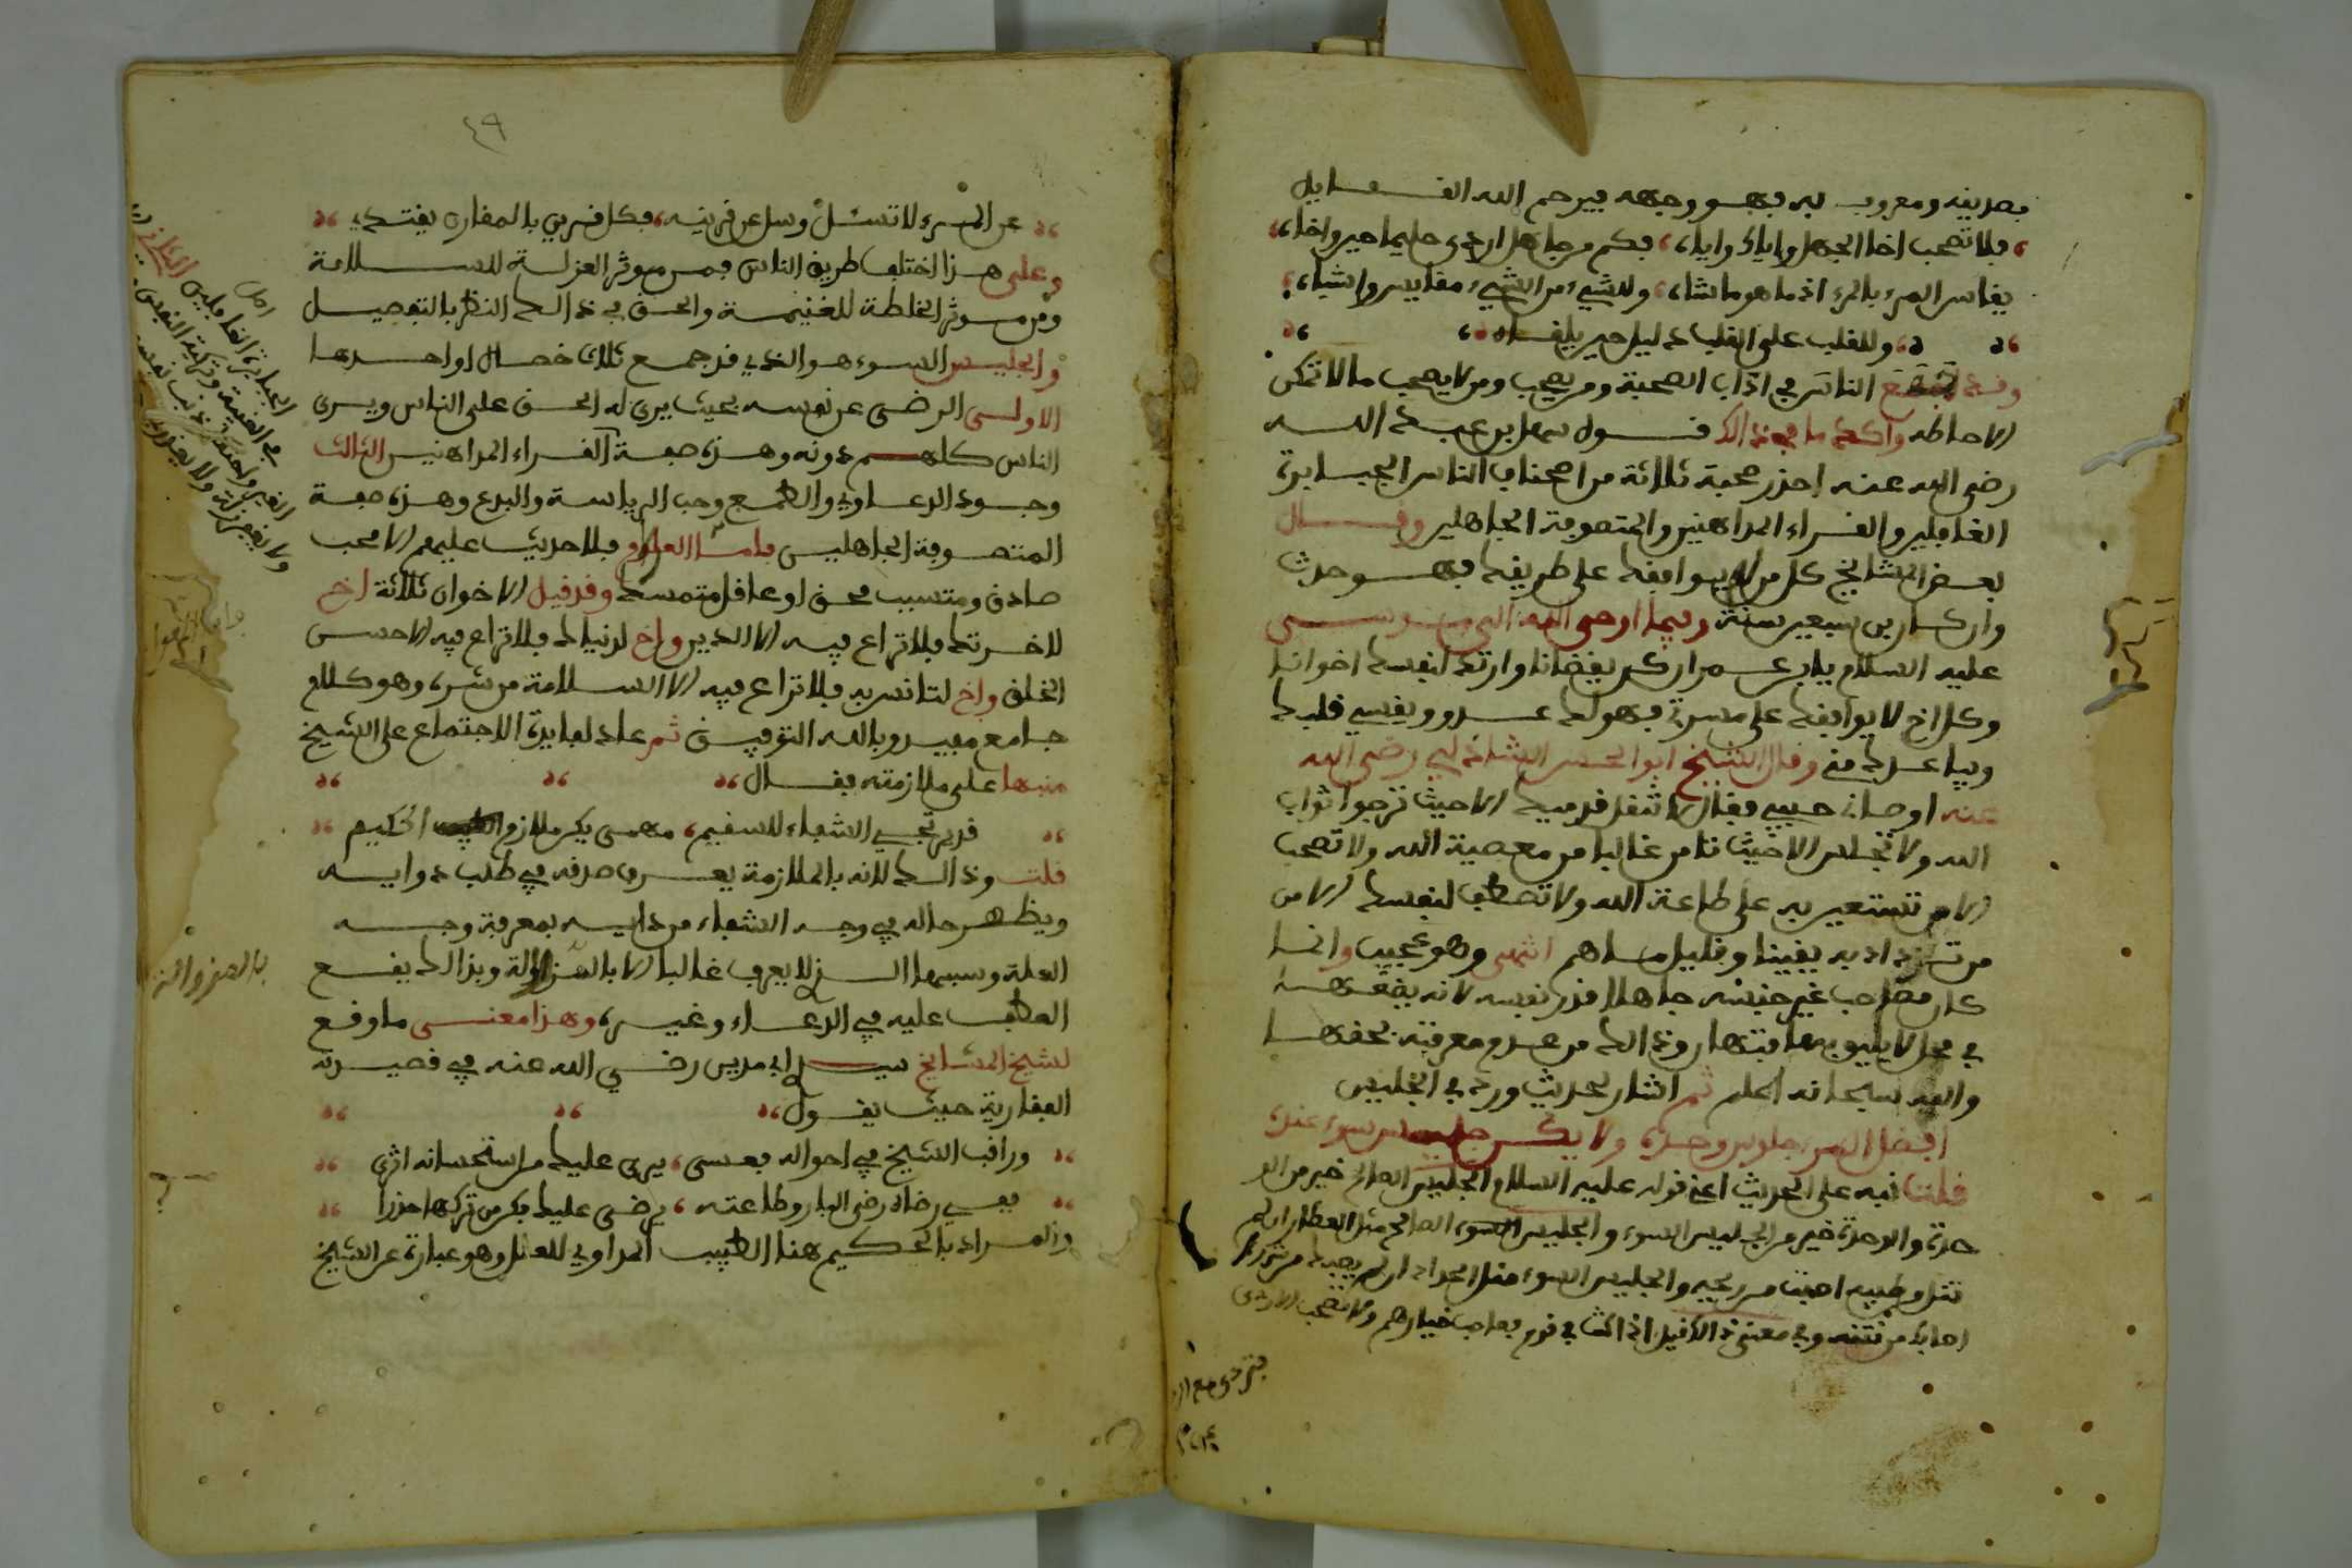 بصديقه ومعروف به فهو وجهه فيرحم الله القايل
فلا تصحب اخا الجهل واياك واياه فكم من جاهل اردى حليما حين واخاه
يقاس المرء بالمرء اذا ما هو ما شاه وللشيء من الشيء مقاييس واشباه
وللقلب على القلب دليل حين يلقاه
وقد الناس في اداب الصحبة ومن يصحب ومن لا يصحب ما لا تمكن
الاحاطه واكد ما في ذالك قول سهل بن عبد الله
رضي الله عنه احذر صحبة ثلاثة من اصناف الناس الجبابرة
الغافلين والقراء المداهنين والمتصوفة الجاهلين وقال
بعض المشايخ كل من لا يوافقك على طريقك فهو حدث
وان كان ابن سبعين سنة وفيما اوحى الله الى موسى
عليه السلام يابن عمران كن يقضانا وارتد لنفسك اخوانا
وكل اخ لا يوافقك على مسرتي فهو لك عدو ويقسي قلبك
ويباعدك مني وقال الشيخ ابو الحسن الشاذلي رضي الله
عنه اوصاني حبيبي فقال لا تنقل قدميك الا حيث ترجوا ثواب
الله ولا تجلس الا حيث تامن غالبا من معصية الله ولا تصحب
الا من تستعين به على طاعة الله ولا تصطف لنفسك الا من
من تزداد به يقينا وقليل ما هم انتهى وهو عجيب وانما
كان مصاحب غير جنسه جاهلا قدر نفسه لانه يضعها
في محل لا يليق بها وذالك من عدم معرفته بحقها
والله سبحانه اعلم ثم اشار لحديث ورد في الجليس
افضل المرء جلوس وحده ولا يكن جليس سوء عنده
قلت نبه على الحديث اعني قوله عليه السلام الجليس الصالح خير من الو
حدة والوحدة خير من الجليس السوء والجليس الصالح مثل العطار ان لم
تنل من طيبه اصبت من ريحه والجليس السوء مثل الحداد ان لم يصبك من شرره
اصابك من نتنه وفي معنى ذالك قيل اذا كنت في قوم فصاحب خيارهم ولا تصحب الاردى
فتردى مع الر
دي
٤٩
عن المرء لا تسئل وسل عن قرينه فكل قرين بالمقارن يقتدي
وعلى هذا اختلف طريق الناس فمن موثر العزلة للسلامة
ومن موثر الخلطة للغنيمة والحق في ذالك النظر بالتفصيل
والجليس السوء هو الذي قد جمع ثلاث خصال او احدها
الاولى الرضى عن نفسه بحيث يرى له الحق على الناس ويرى
الناس كلهم دونه وهذه صفة القراء المداهنين الثالث
وجود الدعاوي والطمع وحب الرياسة والبدع وهذه صفة
المتصوفة الجاهلين فامثا العوام فلا حديث عليهم الا محب
صادق ومتسبب محق او عاقل متمسك وقد قيل الاخوان ثلاثة اخ
لاخرتك فلا تراع فيه الا الدين واخ لدنياك فلا تراع فيه الا حسن
الخلق واخ لتانس به فلا تراع فيه الا السلامة من شره وهو كلام
جامع مفيد وبالله التوفيق ثم عاد لفايدة الاجتماع على الشيخ
منبها على ملازمته فقال
قد يرتجي الشفاء للسقيم مهمى يكن ملازم الحكيم
قلت وذالك لانه بالملازمة يعرف صدقه في طلب دوايه
ويظهر حاله في وجه الشفاء من دايه بمعرفة وجه
العلة وسببها الذي لا يعرف غالبا الا بالمزاولة وبذالك يقع
العطف عليه في الدعاء وغيره وهذا معنى ما وقع
لشيخ المشايخ سيدي ابي مدين رضي الله عنه في قصيدته
الفقارية حيث يقول
وراقب الشيخ في احواله فعسى يرى عليك من استحسانه اثرى
ففي رضاه رضى البار وطاعته يرضى عليك فكن من تركها حذرا
والمراد بالحكيم هنا الطبيب المداوي للعلل وهو عبارة عن الشيخ
اصل
الجبابرة الغافلين
في الغيبة وتزكية النفس
ولا يغفر زلة ولا يعذر